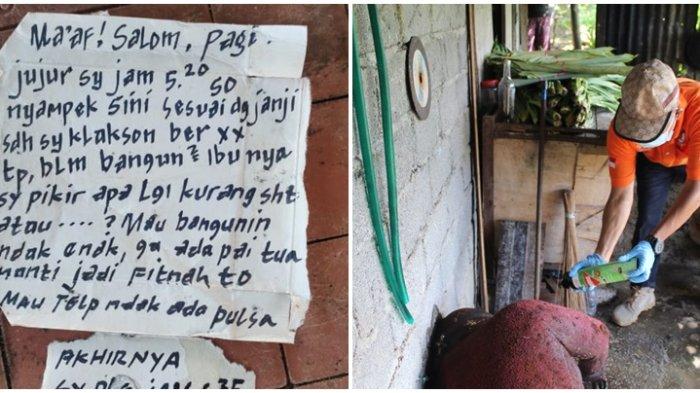 Ma'af! Salom, pagi.
jujur sy jam 5.20 so
nyampek sini sesuai dg janji
sdh sy klakson ber xx
tp, blm bangun² ibu nya
sy pikir apa Lgi kurang sht
atau ....? Mau bangunin
ndak enak, ga ada pai tua
nanti jadi Fitnah to
Mau Telp ndak ada pulsa
AKHIRNYA